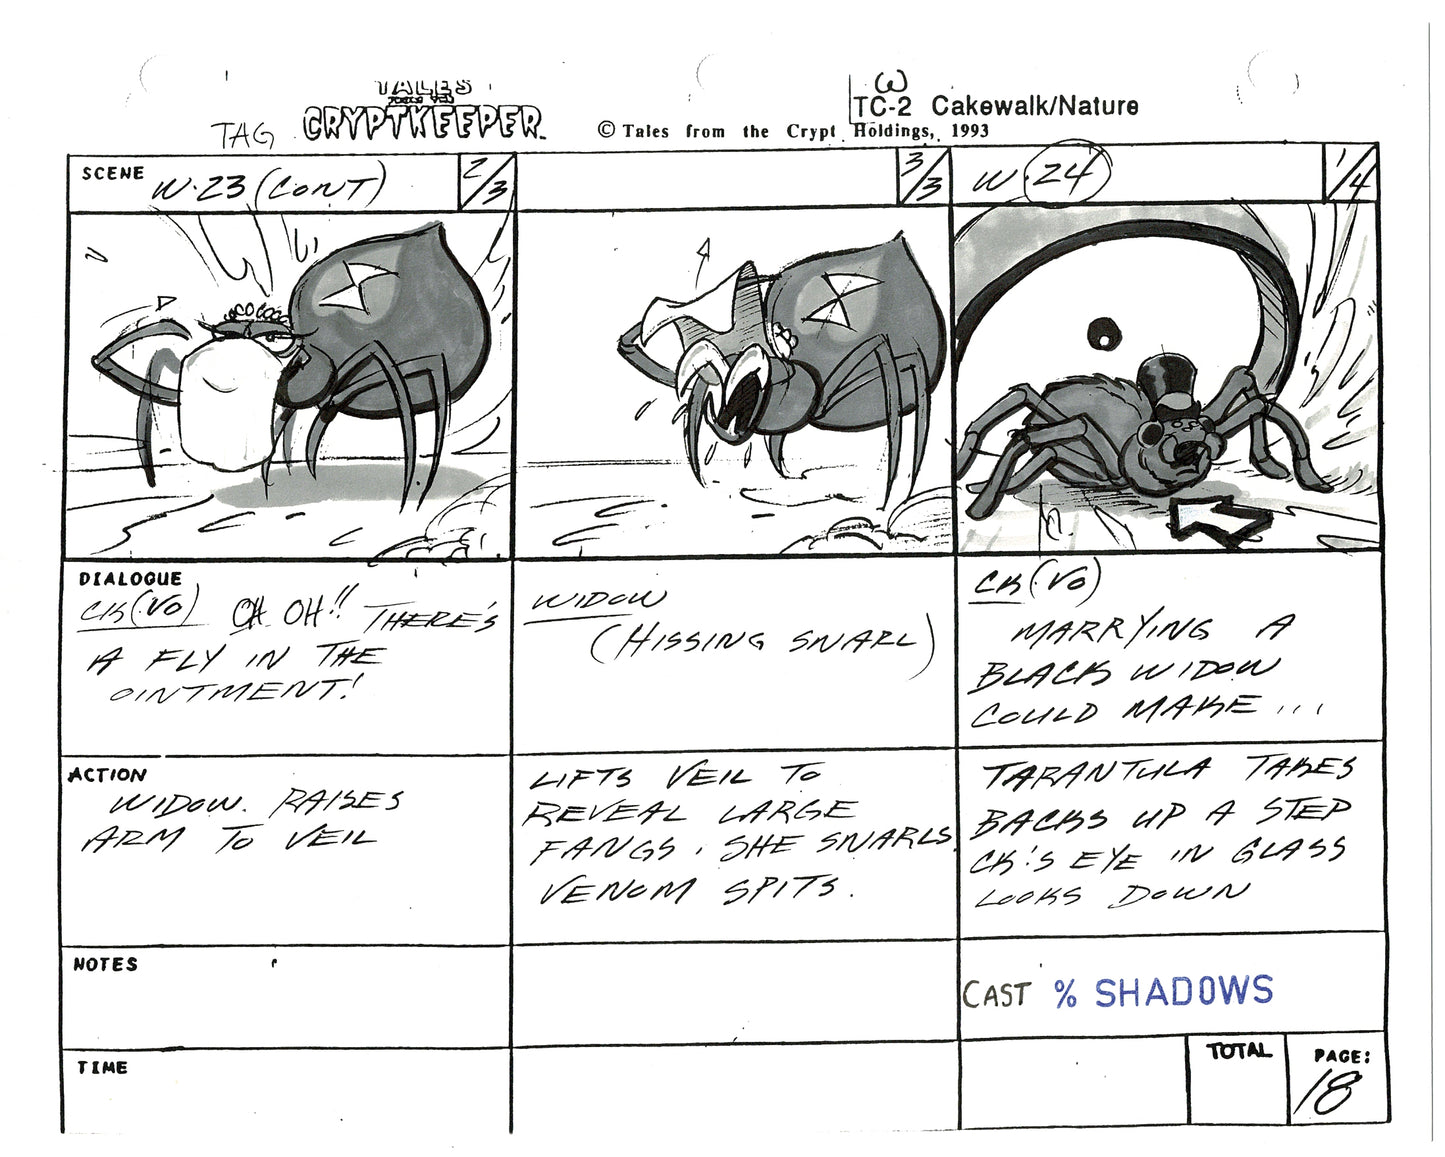 TAG
TALES
FROM THE
CRYPTKEEPER
© Tales from the Crypt Holdings, 1993
W
TC-2 Cakewalk/Nature
SCENE W.23 (CONT) 2/3
3/3
W.24 1/4
DIALOGUE
CK (VO) OH OH!! THERE'S
A FLY IN THE
OINTMENT!
WIDOW
(HISSING SNARL)
CK (VO)
MARRYING A
BLACK WIDOW
COULD MAKE...
ACTION
WIDOW. RAISES
ARM TO VEIL
LIFTS VEIL TO
REVEAL LARGE
FANGS. SHE SNARLS.
VENOM SPITS.
TARANTULA TAKES
BACKS UP A STEP
CK'S EYE IN GLASS
LOOKS DOWN
NOTES
CAST % SHADOWS
TIME
TOTAL
PAGE:
18